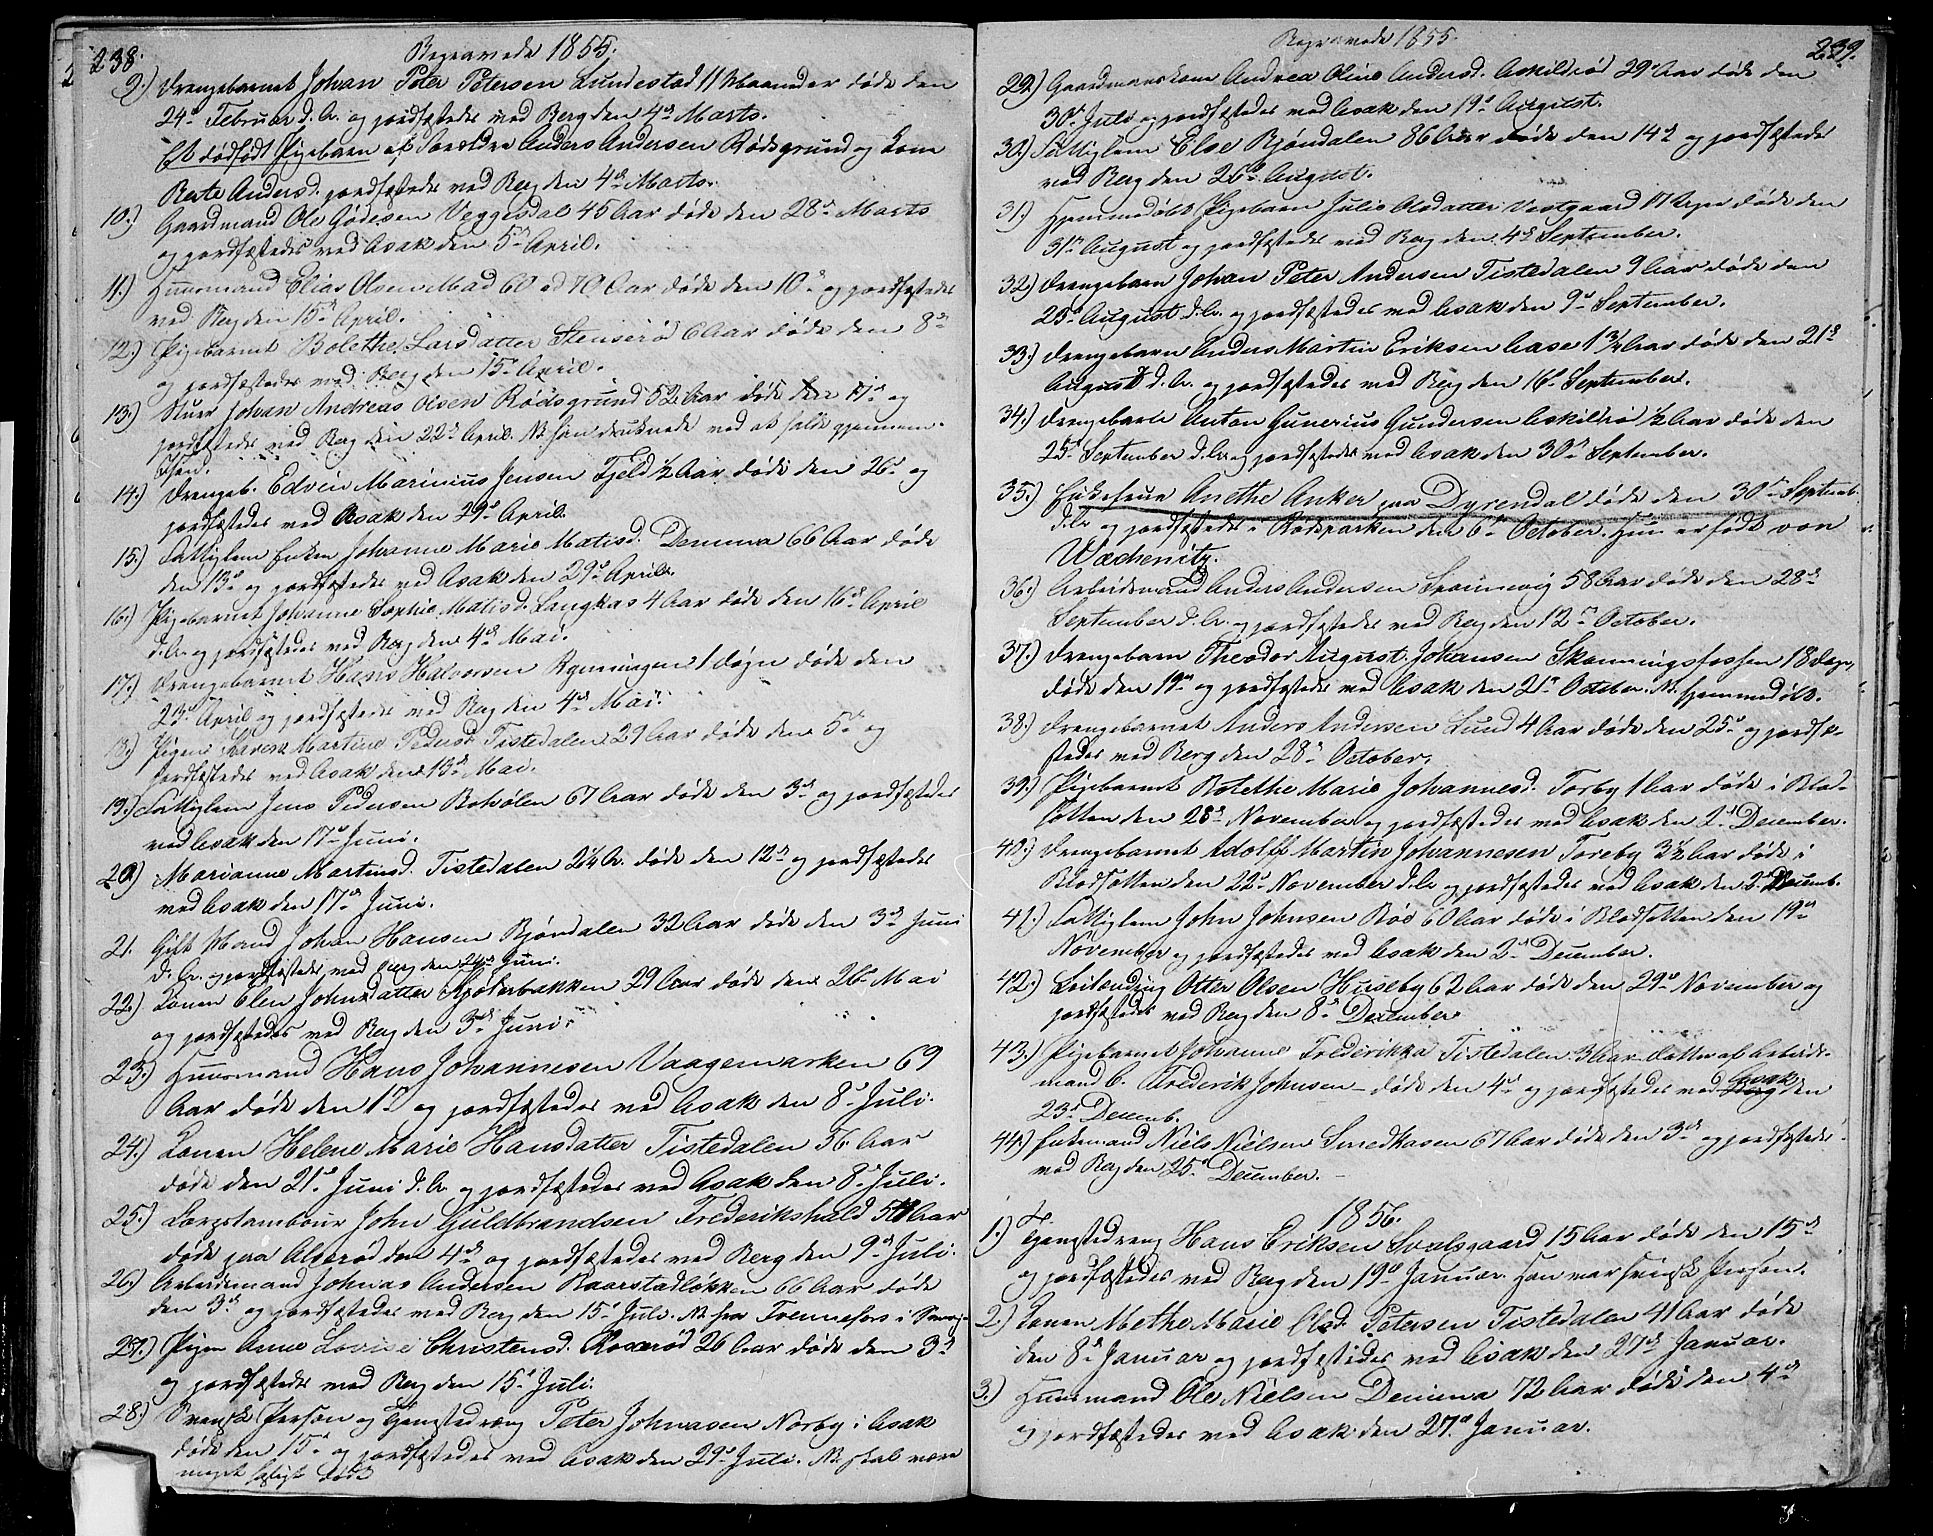 238.
Begravede 1855.
9.) Drengebarnet Johan Peter Petersen Lundestad 11 Maaneder døde den
24de Februar d. A. og jordfæstedes ved Berg den 4de Marts.
Et dødfødt Pigebarn af Forældre Anders Andersen Rødsgrund og Kone
Berte Andersd. jordfæstedes ved Berg den 4de Marts.
10.) Gaardmand Ole Gødesen Veggesdal 45 Aar døde den 28de Marts
og jordfæstedes ved Asak den 5te April.
11.) Huusmand Elias Olsen Mad 60 ad 70 Aar døde den 10de og jordfæstedes
ved Berg den 15de April.
12.) Pigebarnet Bolethe Larsdatter Stenserød 6 Aar døde den 8de
og jordfæstedes ved Berg den 15de April.
13.) Skuer Johan Andreas Olsen Rødsgrund 52 Aar døde den 11te og
jordfæstedes ved Berg den 22de April. NB han druknede ved at falde gjennem
Isen.
14.) Drengeb. Edvin Marinius Jensen Fjeld 1/2 Aar døde den 26de og
jordfæstedes ved Asak den 29de April.
15.) Fattiglem Enken Johanne Marie Matisd. Demma 66 Aar døde
den 13de og jordfæstedes ved Asak den 29de April.
16.) Pigebarnet Johanne Sophie Matisd. Langkas 4 Aar døde den 16de April
d. A. og jordfæstedes ved Berg den 4de Mai.
17.) Drengebarnet Hans Halvorsen Rønningen 1 Døgn døde den
23de April og jordfæstedes ved Berg den 4de Mai.
18.) Pigen Karen Martine Pedersd. Tistedalen 29 Aar døde den 5te og
jordfæstedes ved Asak den 13de Mai.
19.) Fattiglem Jens Pedersen Bakølen 67 Aar døde den 3de og jordfæstedes
ved Asak den 17de Juni.
20.) Marianne Martinsd. Tistedalen 2 1/2 A. døde den 12te og jordfæstedes
ved Asak den 17de Juni.
21. Gift Mand Johan Hansen Bjørndalen 32 Aar døde den 3de Juni
d. A. og jordfæstedes ved Berg den 24de Juni.
22.) Konen Elen Johnsdatter Gjøterbakken 29 Aar døde den 26de Mai
og jordfæstedes ved Berg den 3de Juni.
23.) Huusmand Hans Johannesen Vaagemarken 69
Aar døde den 1te og jordfæstedes ved Asak den 8de Juli.
24.) Konen Helene Marie Hansdatter Tistedalen 56 Aar
døde den 21de Juni d. A. og jordfæstedes ved Asak den 8de Juli.
25.) Korpstambour John Guldbrandsen Frederikshald 54 Aar
døde paa den 4de og jordfæstedes ved Berg den 9de Juli.
26.) Arbeidsmand Johnas Andersen Baarstadløkken 66 Aar døde
den 3de og jordfæstedes ved Berg den 15de Juli. NB fra Frennefors i Sverige
27.) Pigen Anne Lovise Christensd. Roserød 26 Aar døde den 3de
og jordfæstedes ved Berg den 15de Juli.
28.) Svensk Person og Tjenstedreng Peter Johnasen Norby i Asak
døde den 15de og jordfæstedes ved Asak den 29de Juli. NB skal være
meget døde
239.
Begravede 1855.
29.) Gaardmandskone Andrea Oline Andersd. Askildrød 29 Aar døde den
30te Juli og jordfæstedes ved Asak den 19de August.
30.) Fattiglem Else Bjøndalen 86 Aar døde den 14de og jordfæstedes
ved Berg den 26de August.
31.) Hjemmedøbt Pigebarn Julie Olsdatter Vestgaard 17 Uger døde den
31te August og jordfæstedes ved Berg den 4de September.
32.) Drengebarn Johan Peter Andersen Tistedalen 9 Aar døde den
25de August d. A. og jordfæstedes ved Asak den 9de September.
33.) Drengebarn Anders Martin Eriksen Aase 1 3/4 Aar døde den 21de
August d. A. og jordfæstedes ved Berg den 16de September.
34.) Drengebarn Anton Gunerius Gundersen Askildrød 1/2 Aar døde den
25de September d. A. og jordfæstedes ved Asak den 30te September.
35.) Enkefrue Anethe Anker paa Dyrendal døde den 30te Septemb.
d. A. og jordfæstedes i Rødsparken den 6te October. Hun er født von
Wachenitz.
36.) Arbeidsmand Anders Andersen 58 Aar døde den 28de
September d. A. og jordfæstedes ved Berg den 12te October.
37.) Drengebarn Theodor August Johansen Skonningsfossen 18 Dage,
døde den 19de og jordfæstedes ved Asak den 21te October. NB. hjemmedøbt.
38.) Drengebarnet Anders Andersen Lund 4 Aar døde den 25de og jordfæ-
stedes ved Berg den 28de October.
39.) Pigebarnet Bolethe Marie Johannesd. Torby 1 Aar døde i Blod-
sotten den 28de November og jordfæstedes ved Asak den 2den December.
40.) Drengebarnet Adolff Martin Johannesen Toreby 3 1/2 Aar døde i
Blodsotten den 22de November d. A. og jordfæstedes ved Asak den 2den Decemb.
41.) Fattiglem John Johnsen Røe 60 Aar døde i Blodsotten den 19de
November og jordfæstedes ved Asak den 2den December.
42.) Leilænding Otter Olsen Huseby 62 Aar døde den 29de November og
jordfæstedes ved Berg den 8de December
43.) Pigebarnet Johanne Frederikka Tistedalen 3 Aar datter af Arbeids-
mand C. Frederik Johnsen – døde den 4de og jordfæstedes ved Asak den
23de Decemb.
44.) Enkemand Niels Nielsen Smedhasen 67 Aar døde den 3de og jordfæstedes
ved Berg den 25de December. –
1856.
1.) Tjenstedreng Hans Eriksen Svalsgaard 15 Aar døde den 15de
og jordfæstedes ved Berg den 19de Januar. Han var svensk Person.
2.) Konen Methe Marie Olsd. Petersen Tistedalen 41 Aar døde
den 8de Januar og jordfæstedes ved Asak den 27de Januar.
3.) Huusmand Ole Nielsen Demma 72 Aar døde den 4de
og jordfæstedes ved Asak den 27de Januar.